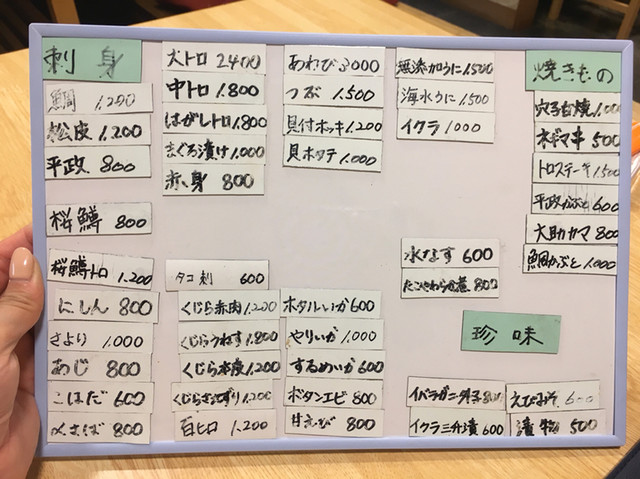 刺身
鯛 1,200
松皮 1,200
平政 800
桜鱒 800
桜鱒トロ 1,200
にしん 800
さより 1,000
あじ 800
こはだ 600
〆さば 800
大トロ 2400
中トロ 1,800
はがしトロ 1,800
まぐろ漬け 1,000
赤身 800
タコ刺 600
くじら赤肉 1,200
くじらうねす 1,800
くじら本皮 1,200
くじらさえずり 1,200
百ヒロ 1,200
あわび 3000
つぶ 1,500
貝付ホッキ 1,200
貝ホタテ 1,000
ホタルいか 600
やりいか 1,000
するめいか 600
ボタンエビ 800
甘えび 800
無添加うに 1,500
海水うに 1,500
イクラ 1000
水なす 600
800
焼きもの
穴子白焼 1,000
ネギマ串 500
トロステーキ 1,500
平政かぶと 600
大助カマ 800
鯛かぶと 1,000
珍味
イバラガニ外子 800
イクラ三升漬 600
えびみそ 600
漬物 500